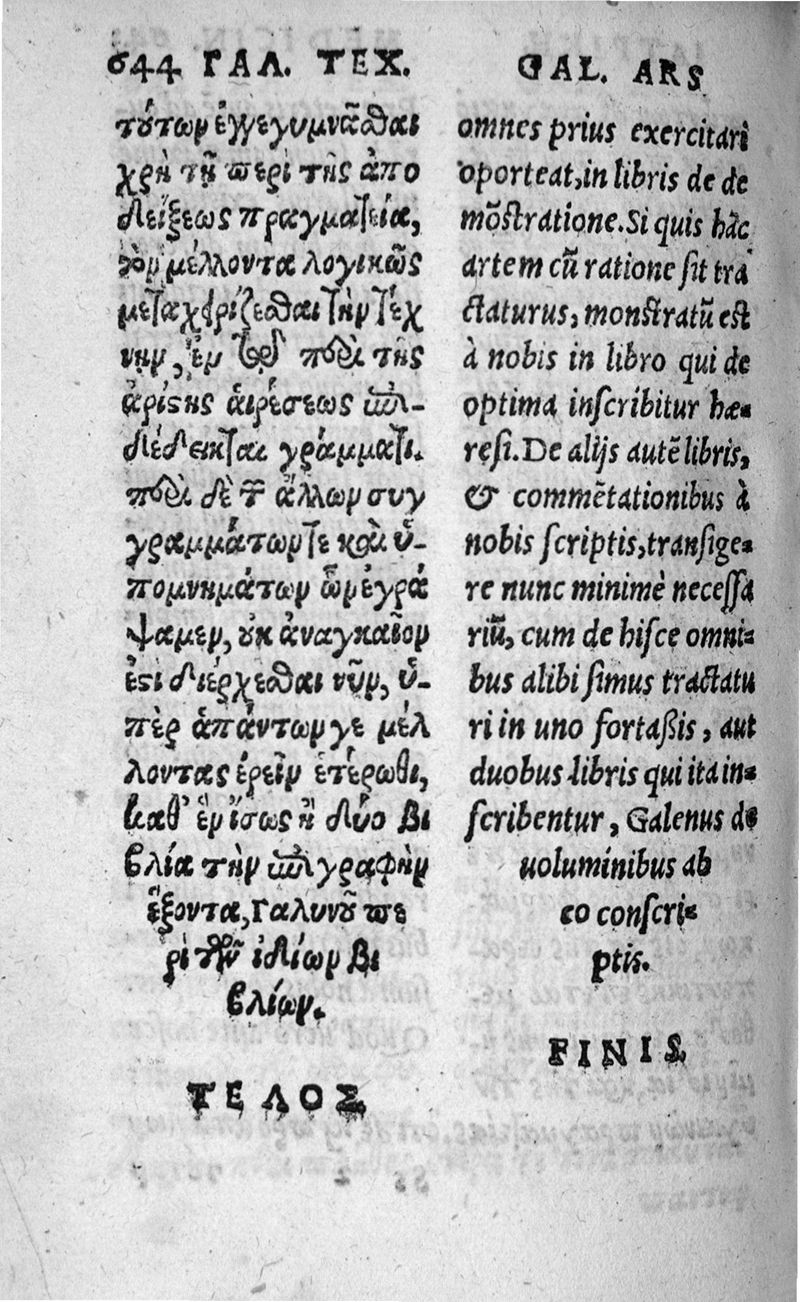 644 ΓΑΛ. ΤΕΧ.
τούτων ἐγγεγυμνᾶσθαι
χρὴ τῇ περὶ τῆς ἀπο
δείξεως πραγματεία,
τὸν μέλλοντα λογικῶς
μεταχειρίζεσθαι τὴν τέχ
νην, ἐν τῷ περὶ τῆς
ἀρίστης αἱρέσεως ἐπι-
δέδεικται γράμματι.
περὶ δὲ τῶν ἄλλων συγ
γραμμάτων τε καὶ ὑ-
πομνημάτων ὧν ἐγρά
ψαμεν, οὐκ ἀναγκαῖον
ἔτι διέρχεσθαι νῦν, ὑ-
πὲρ ἁπάντων γε μέλ
λοντας ἐρεῖν ἑτέρωθι,
καθ' ἓν ἴσως ἢ δύο βι
βλία τὴν ἐπιγραφὴν
ἕξοντα, Γαληνοῦ πε
ρὶ τῶν ἰδίων βι
βλίων.
ΤΕΛΟΣ
GAL. ARS
omnes prius exercitari
oporteat, in libris de de
mõstratione. Si quis hãc
artem cũ ratione sit tra
ctaturus, monstratũ est
à nobis in libro qui de
optima inscribitur hæ-
resi. De alijs autẽ libris,
& commẽtationibus à
nobis scriptis, transige-
re nunc minimè necessa
riũ, cum de hisce omni-
bus alibi simus tractatu
ri in uno fortaßis, aut
duobus libris qui ita in-
scribentur, Galenus de
uoluminibus ab
eo conscri-
ptis.
FINIS